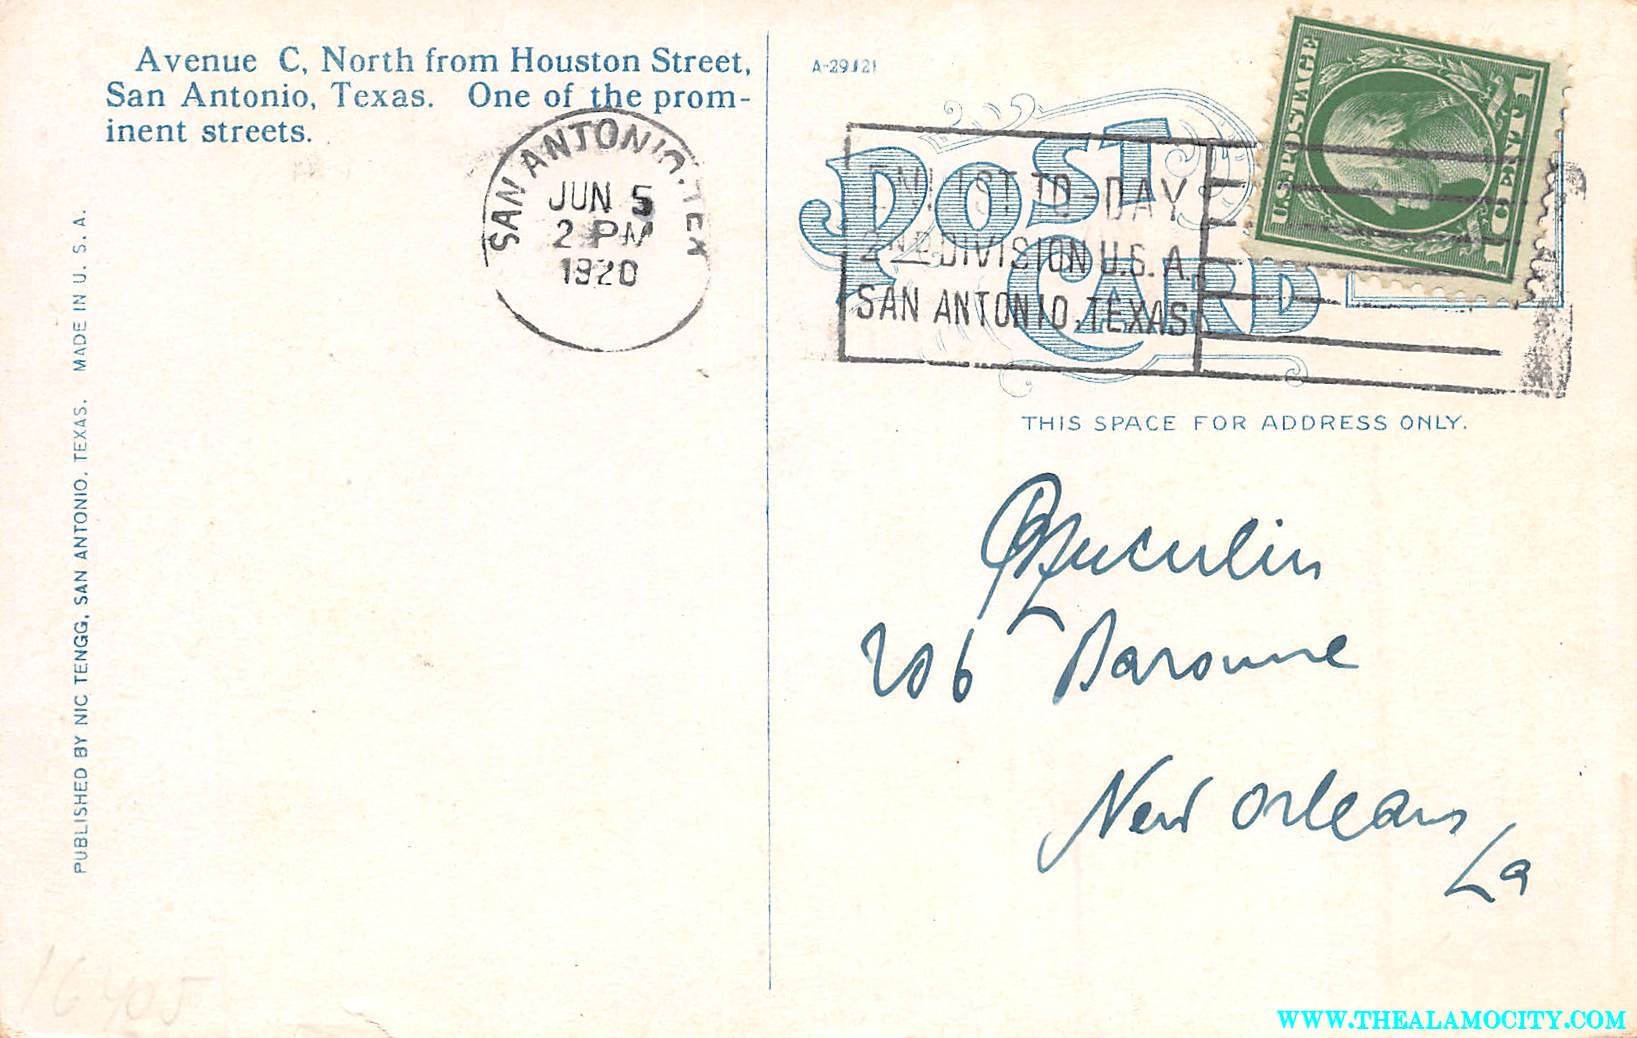 Avenue C, North from Houston Street,
San Antonio, Texas. One of the prom-
inent streets.
SAN ANTONIO, TEX
JUN 5
2 PM
1920
PUBLISHED BY NIC TENGG, SAN ANTONIO, TEXAS. MADE IN U. S. A.
A-29121
POST
CARD
ENLIST TO-DAY
2ND DIVISION U.S.A.
SAN ANTONIO, TEXAS
U.S. POSTAGE
1 CENT 1
THIS SPACE FOR ADDRESS ONLY.
206 Baronne
New Orleans
La
16405
WWW.THEALAMOCITY.COM